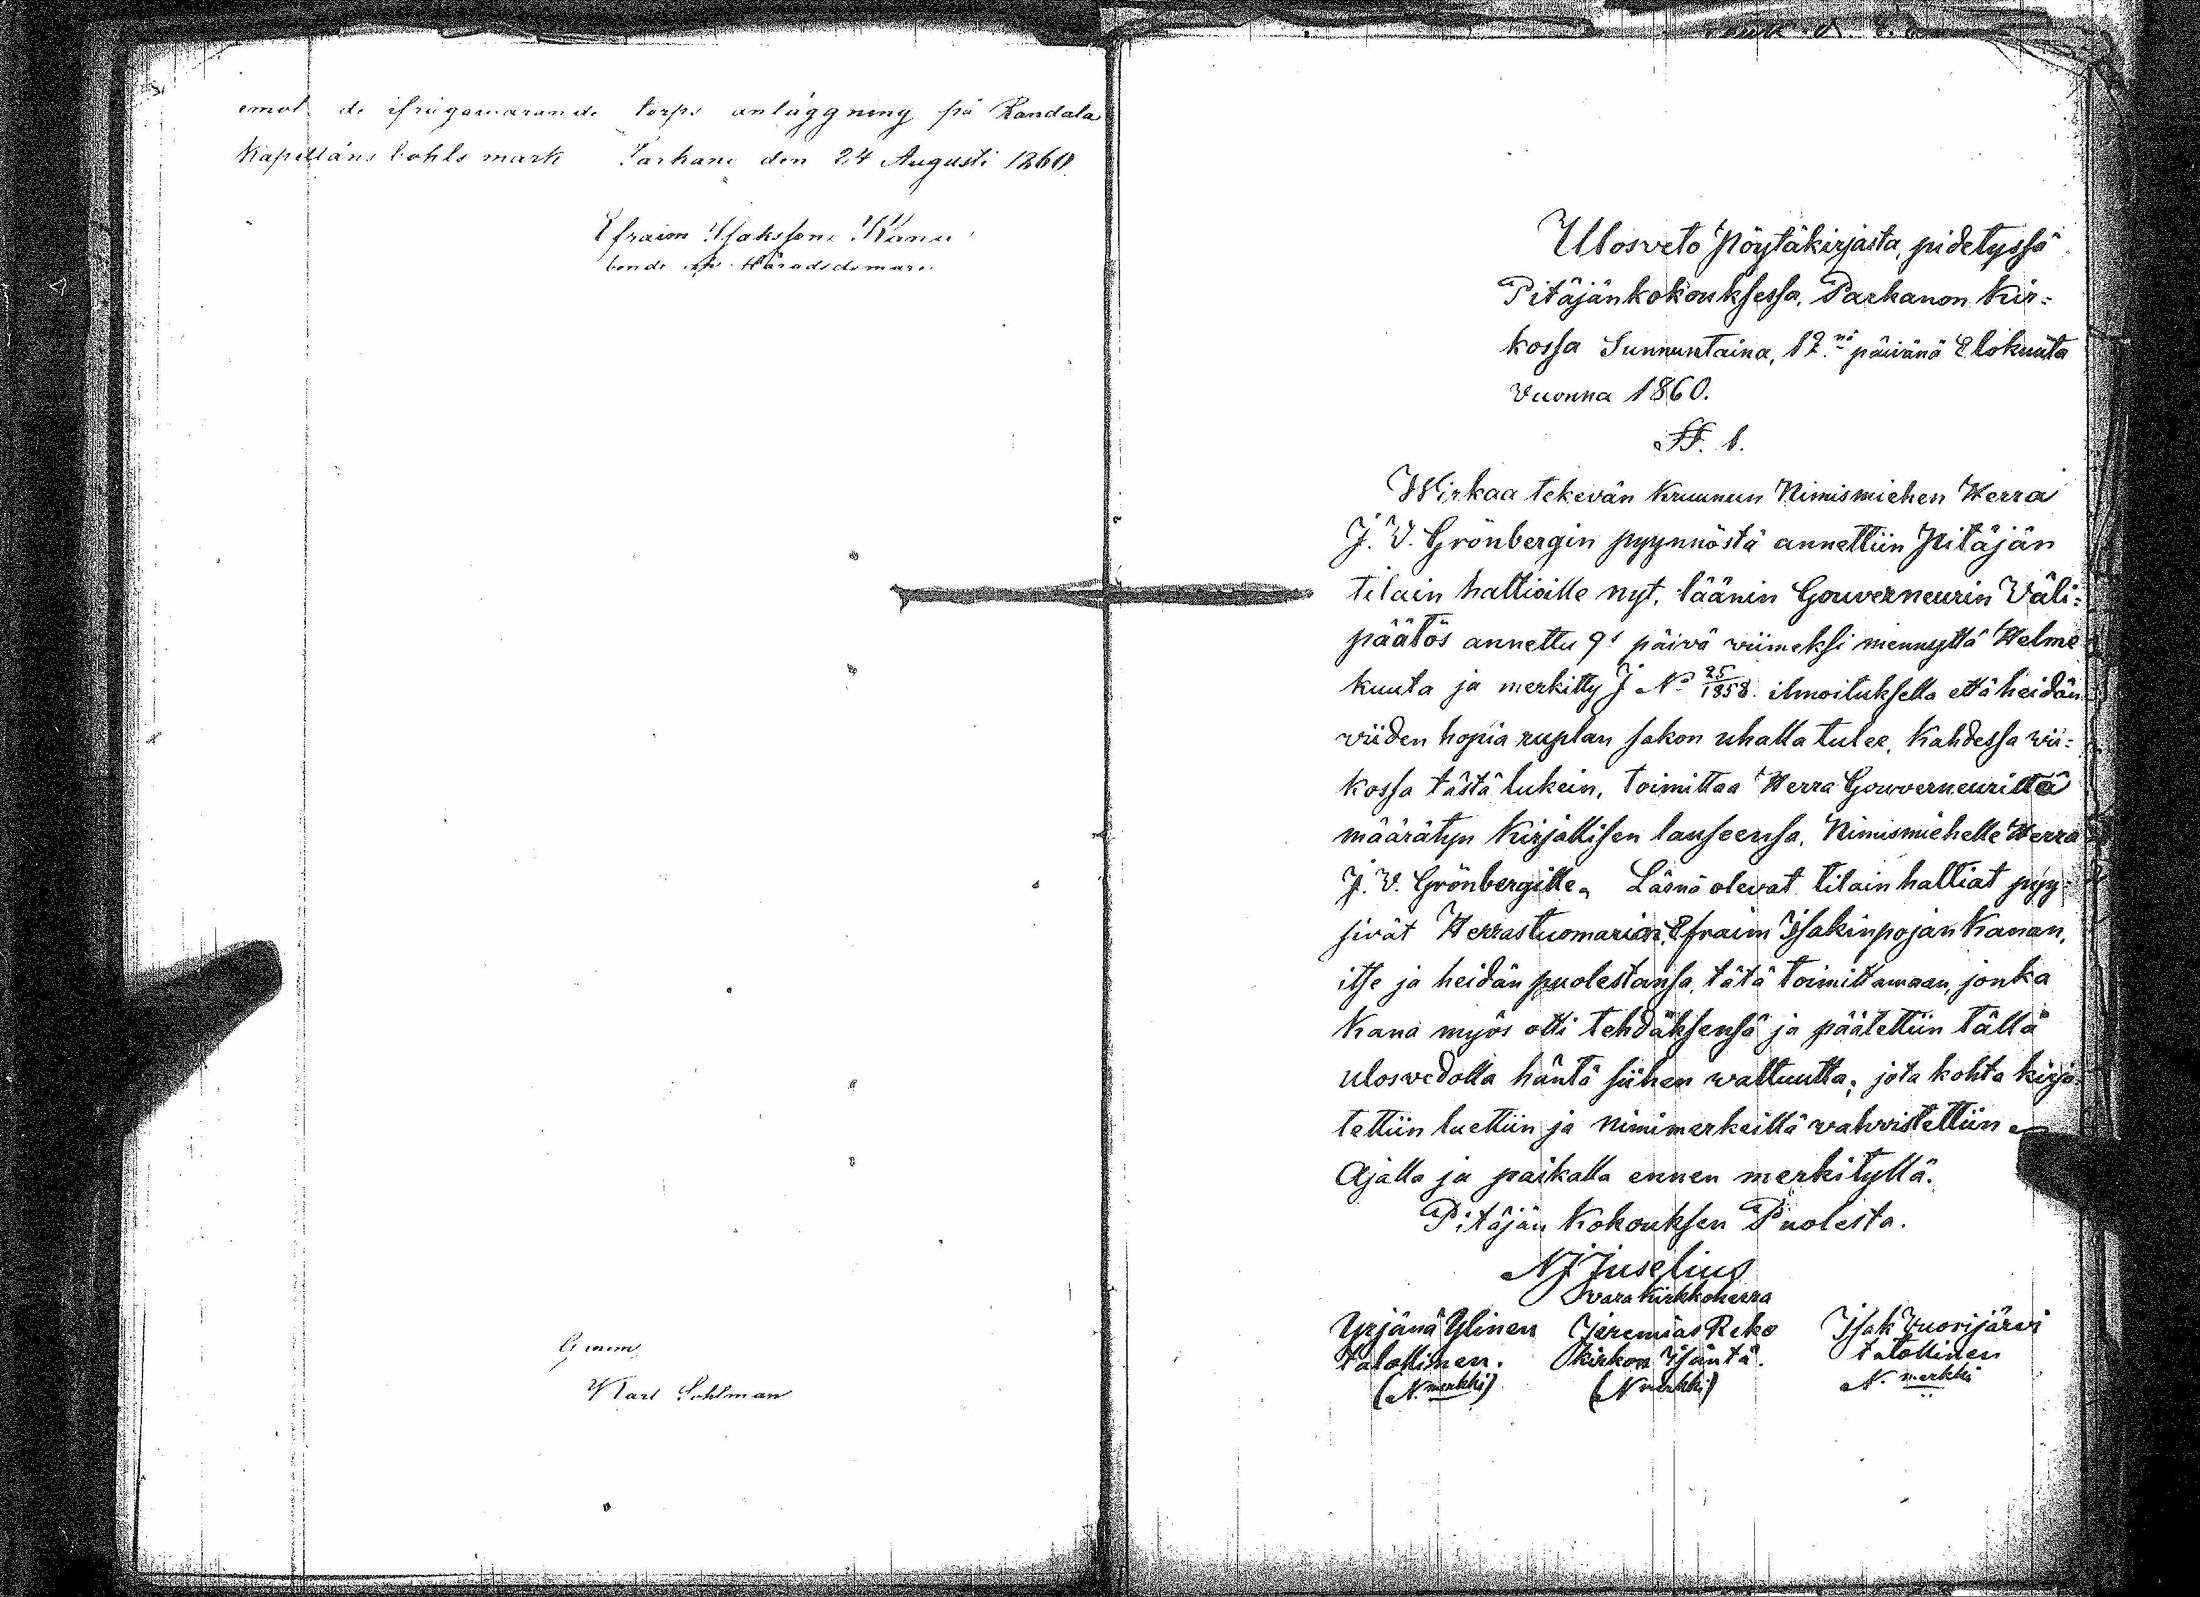 emot de ifrågawarande torps anläggning på Randala
Kapellans bohls mark Parkano den 24 Augusti 1860.
Efraim Isaksson Kana
bonde och Häradsdomare.
Karl Sohlman
Ulosveto Pöytäkirjasta, pidetyssä
Pitäjänkokouksessa, Parkanon Kir=
kossa Sunnuntaina, 12.nä päivänä Elokuuta
Vuonna 1860.
§§. 1.
Wirkaa tekevän Kruunun Nimismiehen Herra
J. V. Grönbergin pyynnöstä annettiin Pitäjän
tilain haltioille nyt, läänin Gouverneurin Väli=
päätös annettu 9s päivä wiimeksi mennyttä Helme
kuuta ja merkitty J No 25/1858. ilmoituksella että heidän
wiiden hopia ruplan sakon uhalla tulee, Kahdessa wii=
kossa tästä lukein, toimittaa Herra Gouverneuriltä
määrätyn Kirjallisen lauseensa, Nimismiehelle Herra
J. V. Grönbergille. Läsnä olevat tilain haltiat pyy=
sivät Herrastuomarin, Efraim Isakinpojan Kanan,
itse ja heidän puolestansa, tätä toimittamaan, jonka
Kana myös otti tehdäksensä ja päätettiin tällä
ulosvedolla häntä siihen waltuutta, jota kohta kirjo=
tettiin luettiin ja nimimerkeillä wahvistettiin
Ajalla ja paikalla ennen merkityllä.
Pitäjän Kokouksen Puolesta.
N J Juselius
vara Kirkkoherra
Yrjänä Ylinen Jeremias Reko Isak Vuorijärvi
talollinen. Kirkon Isäntä. talollinen
(N. merkki) (N merkki) N. merkki